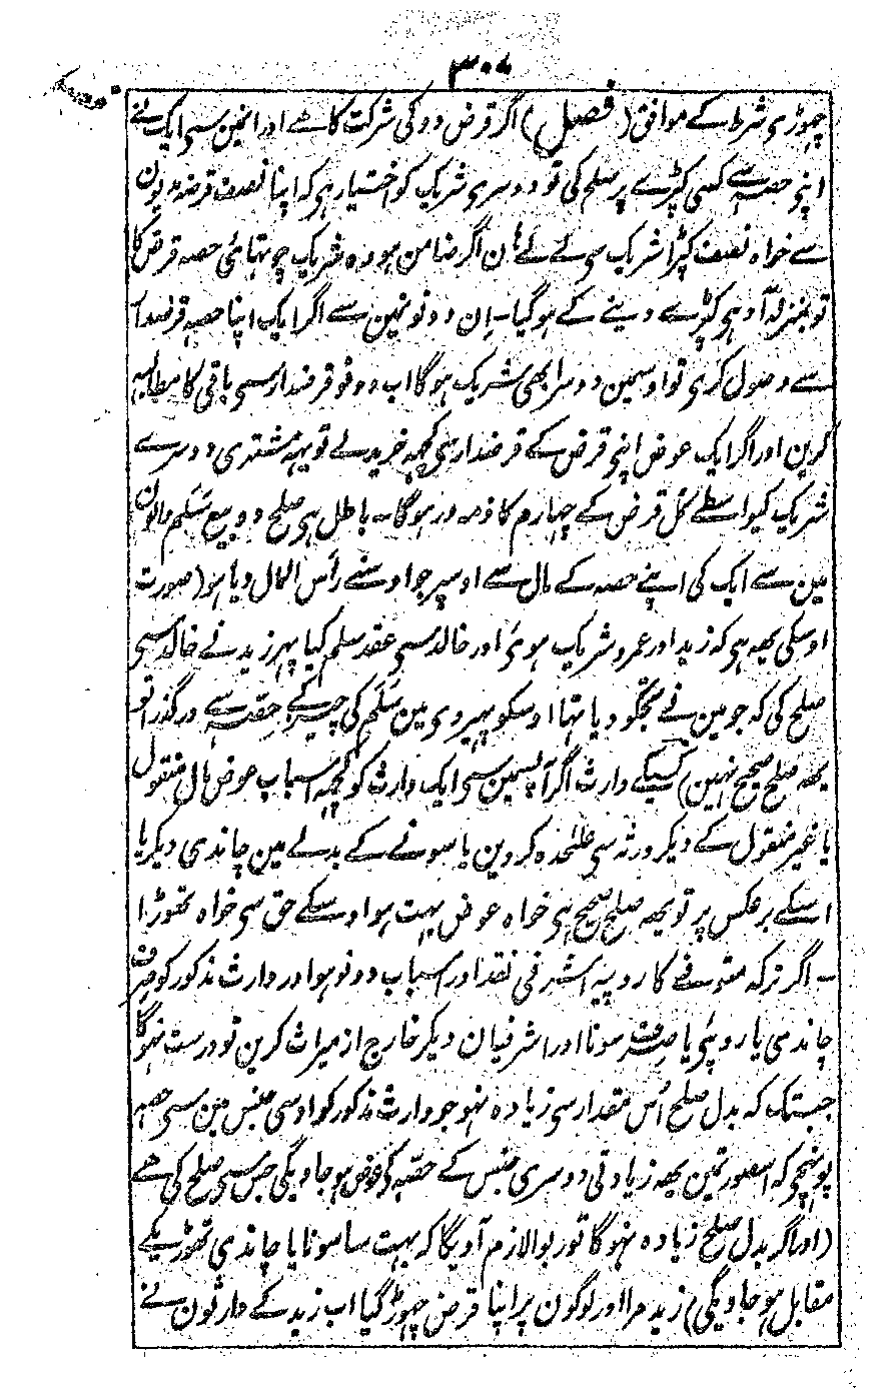 ۳۰۷
چھوڑی شرط کے موافق (فصل) اگر قرض دو کی شرکت کا ہے اور انمین سی ایک نے
اپنی حصہ سے کسی کپڑے پر صلح کی تو دوسری شریک کو اختیار ہی کہ اپنا نصف قرضہ مدیون
سے خواہ نصف کپڑا شریک سی لے لے ہان اگر ضامن ہو وہ شریک چوتہائی حصہ قرض کا
تو بمنزلہ آدہی کپڑے دینے کے ہوگیا۔ اِن دونو نمین سے اگر ایک اپنا حصہ قرضدار
سے وصول کری تو اوسمین دوسرا بھی شریک ہوگا اب دونو قرضدار سی باقی کا مطالبہ
کرین اور اگر ایک عوض اپنی قرض کے قرضدار سی کچہہ خریدلے تو یہہ مشتری دوسرے
شریک کیواسطے کل قرض کے چہارم کا ذمہ ور ہوگا۔ باطل ہی صلح دو بیع سَلَم والون
مین سے ایک کی اپنے حصہ کے مال سے اوسپر جو اوسنے رأس المال دیا ہو (صورت
اوسکی یہہ ہی کہ زید اور عمرو شریک ہوئ اور خالد سی عقد سلم کیا پہر زید نے خالد سی
صلح کی کہ جو مین نے تجکو دیا تہا اوسکو پہیر دی مین سَلَم کی چیز کے حِصّہ سے درگذرا تو
یہہ صلح صحیح نہین) کسیکے وارث اگر آپسمین سی ایک وارث کو کچہہ اسباب عوض مال منقول
یا غیر منقول کے دیکر ورثہ سی علٰحدہ کر دین یا سونے کے بدلے مین چاندی دیکر یا
اسکے برعکس پر تو یہہ صلح صحیح ہی خواہ عوض بہت ہو اوسکے حق سی خواہ تھوڑا
۔ اگر ترکہ متوفے کا روپیہ اشرفی نقد اور اسباب دونو ہو اور وارث مذکور کو صرف
چاندی یا روپئی یا صرف سونا اور اشرفیان دیکر خارج از میراث کرین تو درست نہوگا
جبتک کہ بدل صلح اُس مقدار سی زیادہ نہو جو وارث مذکور کو اوسی جنس مین سی حصہ
پونہچی کہ اسصورتمین یہہ زیادتی دوسری جنس کے حصّہ کی عوض ہو جاویگی جس سی صلح کی ہے
(اور اگر بدل صلح زیادہ نہوگا تو ربوا لازم آویگا کہ بہت سا سونا یا چاندی تھوڑیکے
مقابل ہو جاویگی) زید مرا اور لوگون پر اپنا قرض چھوڑ گیا اب زید کے وارثون نے